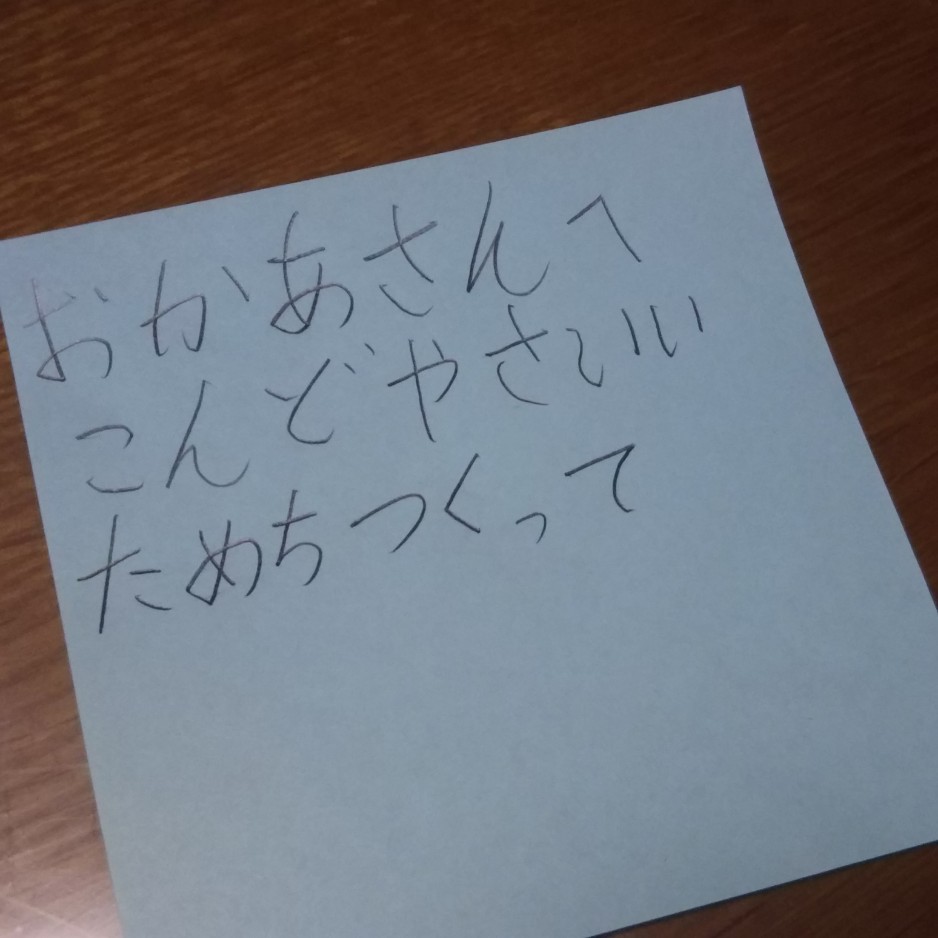 おかあさんへ
こんどやさいいい
ためちつくって